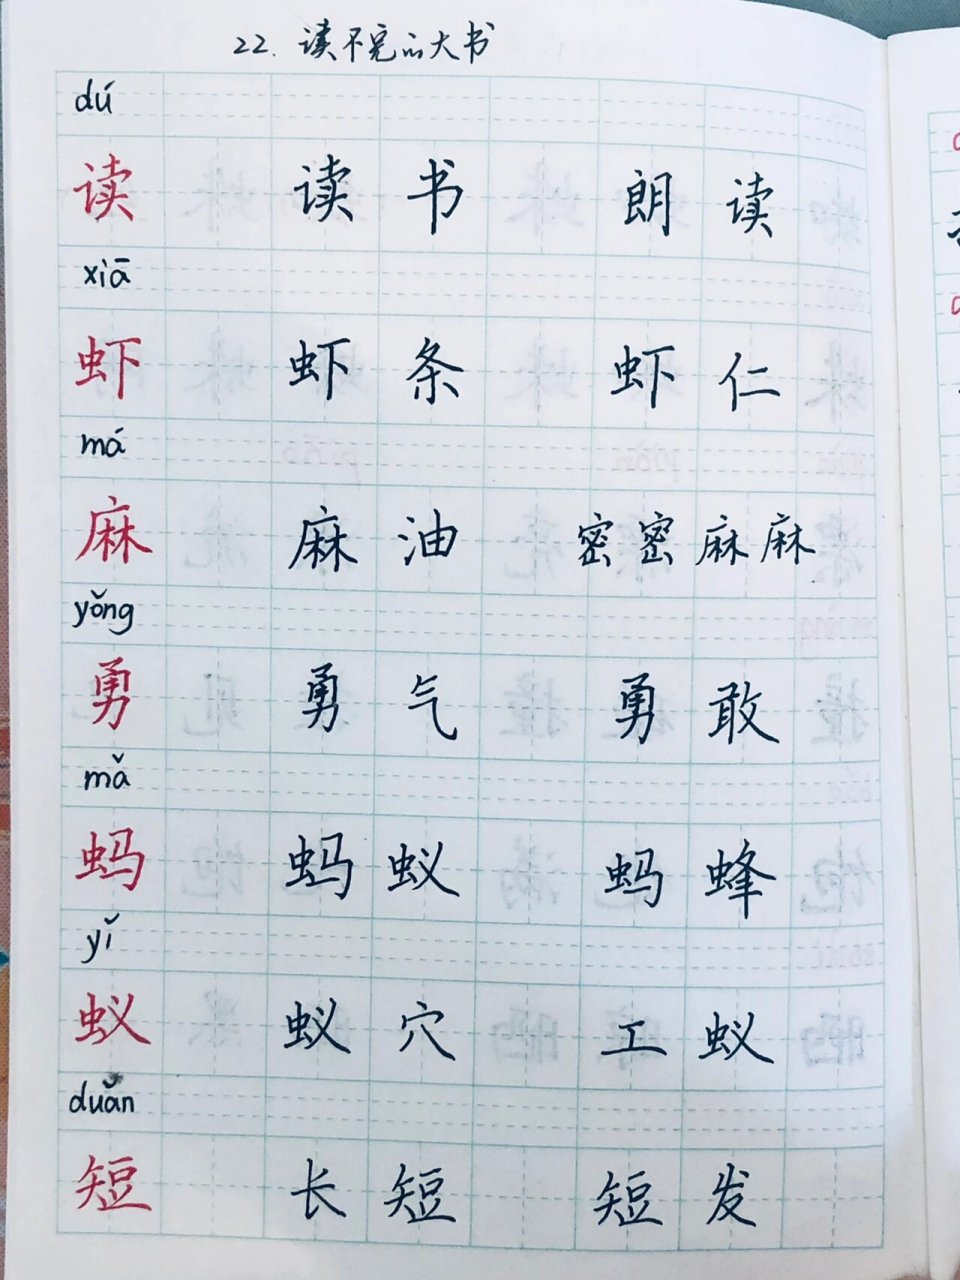 22. 读不完的大书
dú
读 读书 朗读
xiā
虾 虾条 虾仁
má
麻 麻油 密密麻麻
yǒng
勇 勇气 勇敢
mǎ
蚂 蚂蚁 蚂蜂
yǐ
蚁 蚁穴 工蚁
duǎn
短 长短 短发